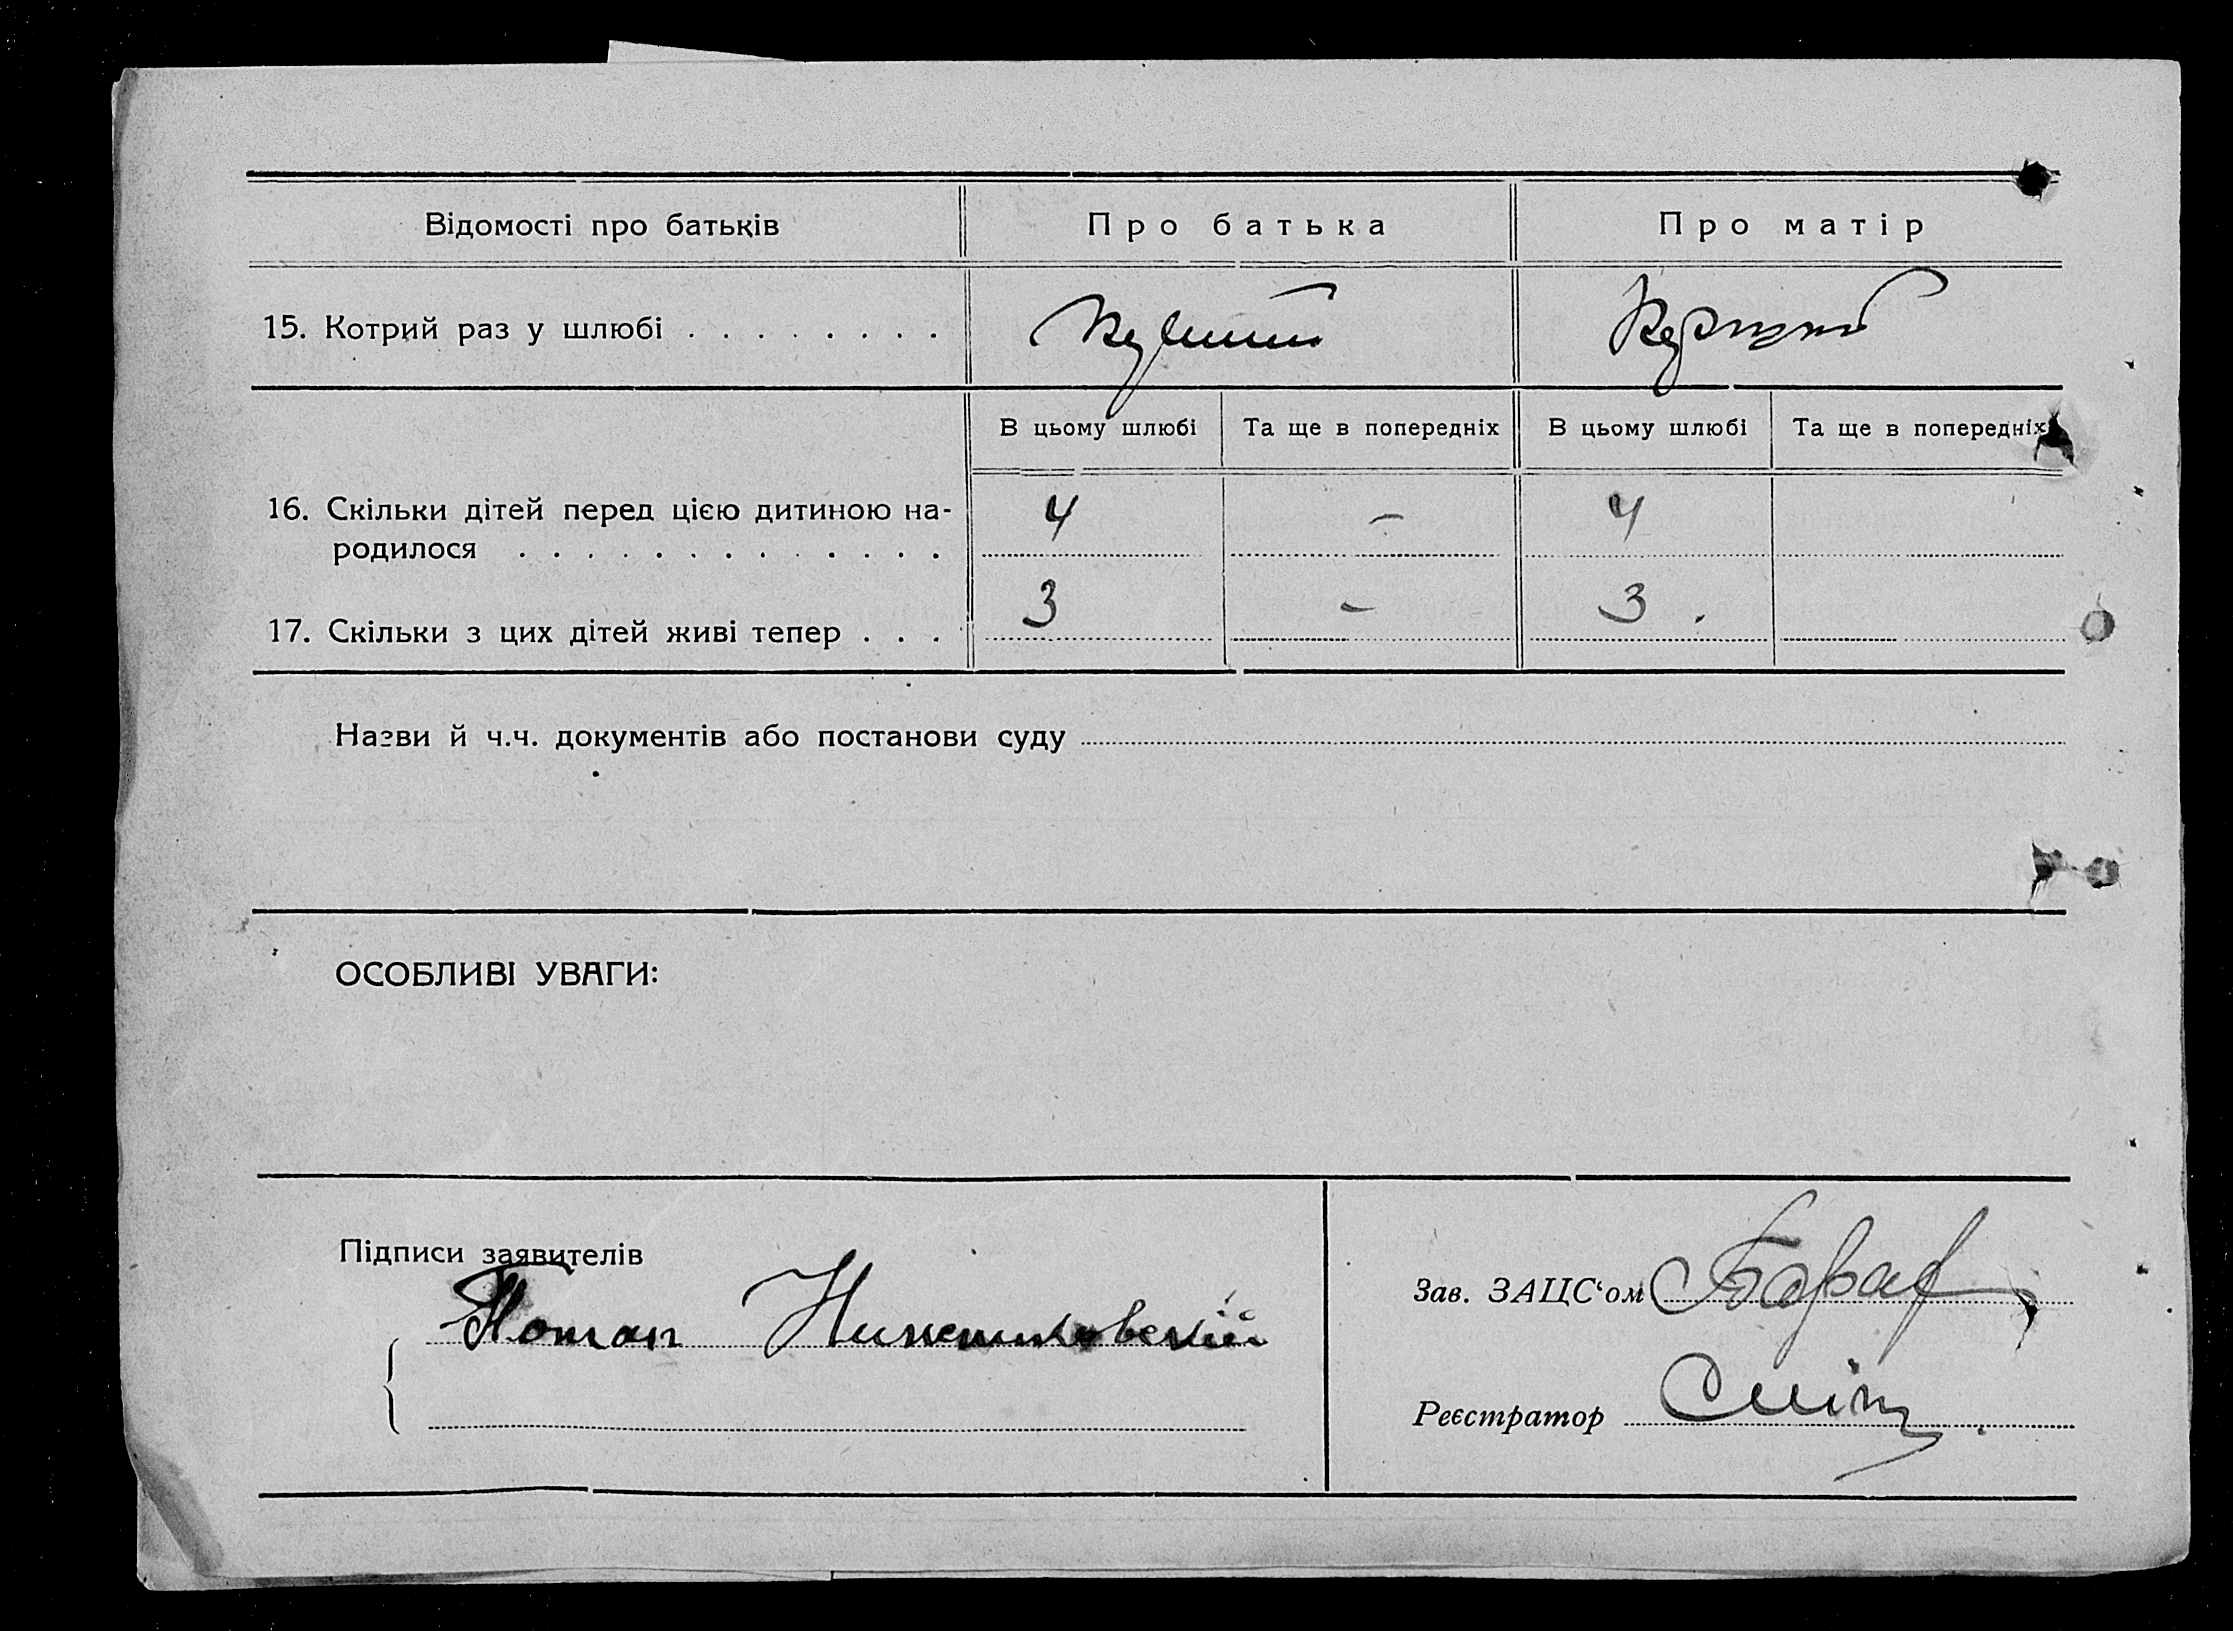 Відомості про батьків Про батька Про матір
15. Котрий раз у шлюбі . . . . . . . .
В цьому шлюбі Та ще в попередніх В цьому шлюбі Та ще в попередніх
16. Скільки дітей перед цією дитиною на-
родилося . . . . . . . . . . . . . 4 - 4
17. Скільки з цих дітей живі тепер . . . 3 - 3.
Назви й ч.ч. документів або постанови суду
ОСОБЛИВІ УВАГИ:
Підписи заявителів
Потап
Зав. ЗАЦС‘ом
Реєстратор